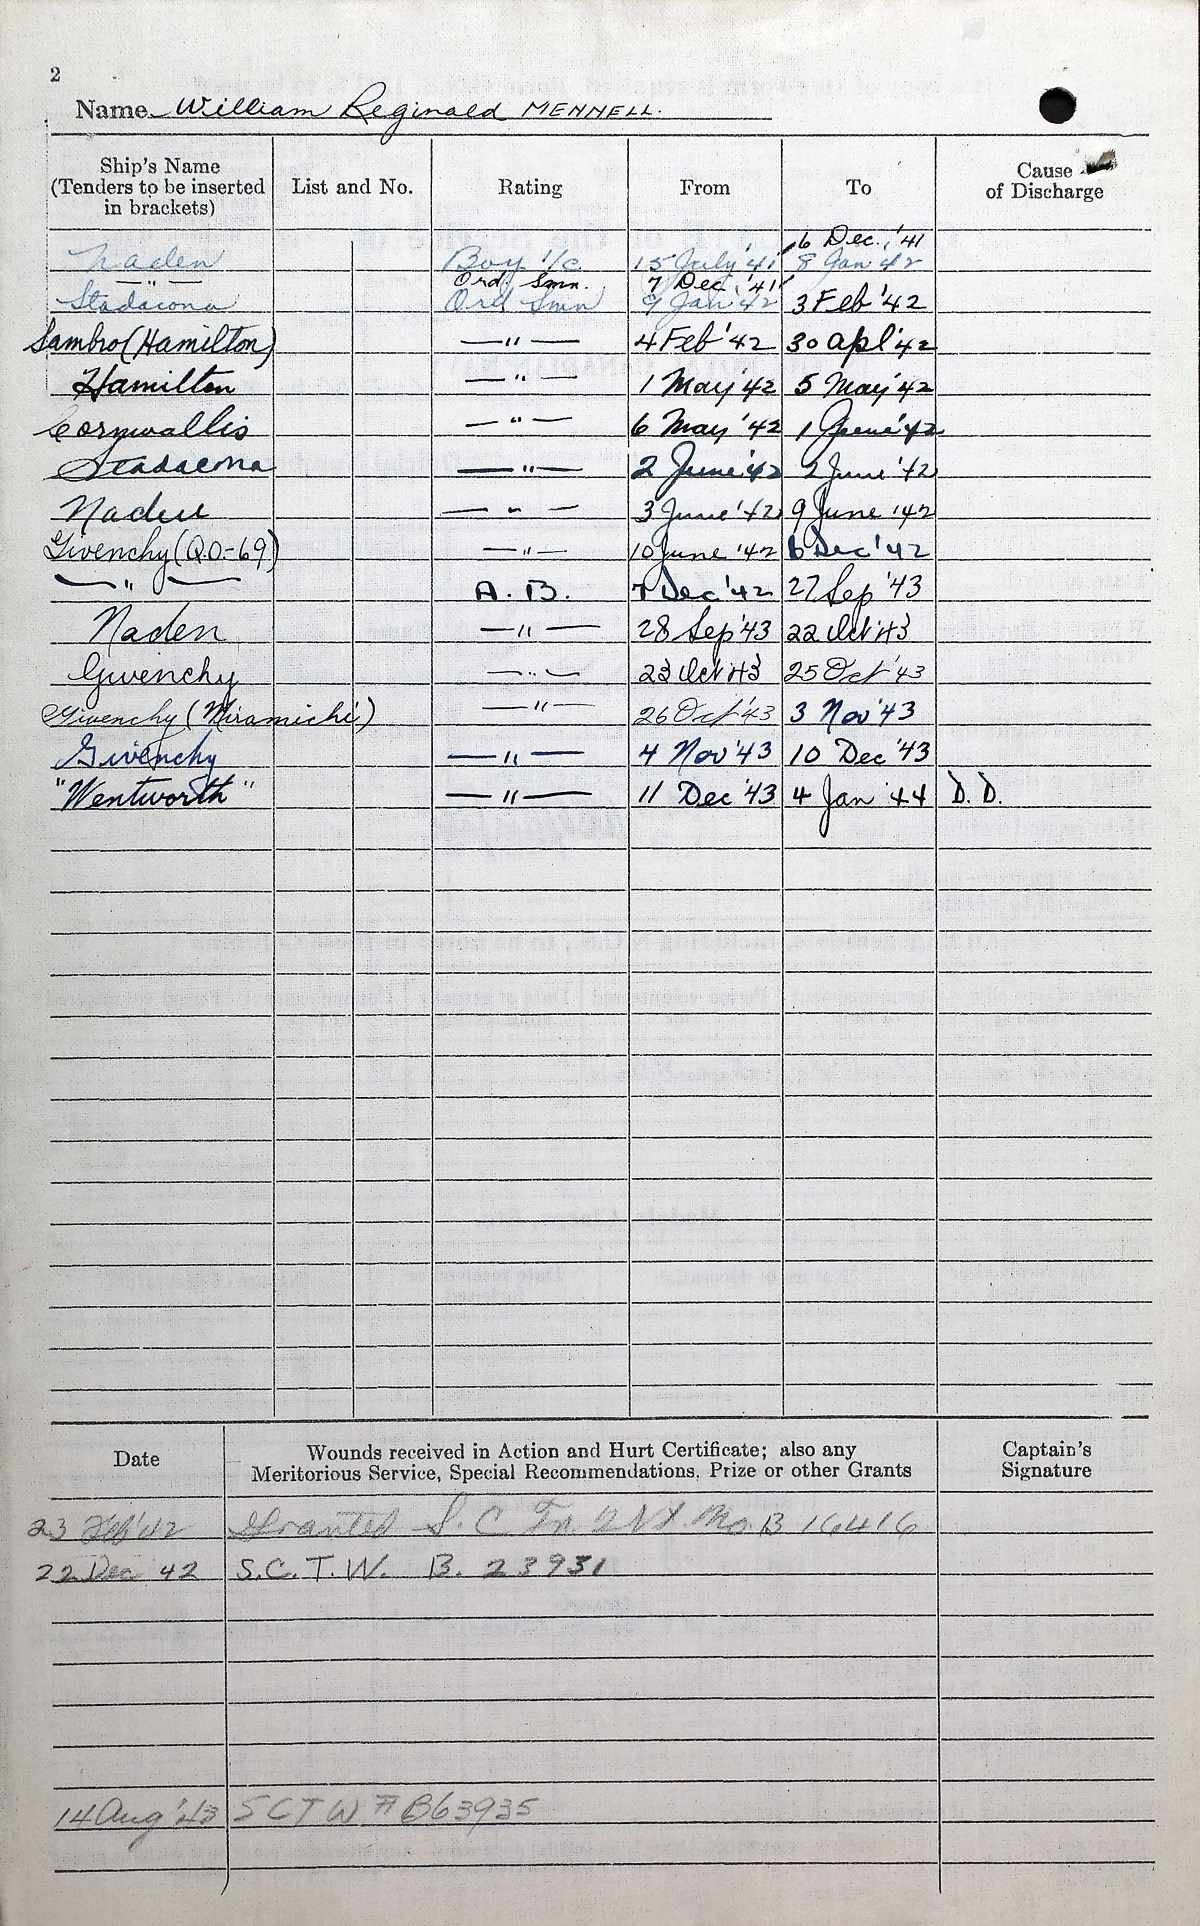 2
Name William Reginald MENNELL.
Ship's Name (Tenders to be inserted in brackets) List and No. Rating From To Cause of Discharge
6 Dec. '41
Naden Boy 1/c 15 July '41 8 Jan 42
—"— Ord. Smn. 7 Dec. '41
Stadacona Ord Smn 9 Jan '42 3 Feb '42
Sambro (Hamilton) —"— 4 Feb '42 30 apl '42
Hamilton —"— 1 May '42 5 May '42
Cornwallis —"— 6 May '42 1 June '42
Stadacona —"— 2 June '42 2 June '42
Naden —"— 3 June '42 9 June '42
Givenchy (Q.O-69) —"— 10 June '42 6 Dec '42
—"— A.B. 7 Dec '42 27 Sep '43
Naden —"— 28 Sep '43 22 Oct '43
Givenchy —"— 23 Oct '43 25 Oct '43
Givenchy (Miramichi) —"— 26 Oct '43 3 Nov '43
Givenchy —"— 4 Nov '43 10 Dec '43
"Wentworth" —"— 11 Dec '43 4 Jan '44 D.D.
Date Wounds received in Action and Hurt Certificate; also any Meritorious Service, Special Recommendations, Prize or other Grants Captain's Signature
23 Feb '42 Granted S.C. No. B 16416
22 Dec 42 S.C.T.W. B. 23931
14 Aug '43 SCTW # B63935